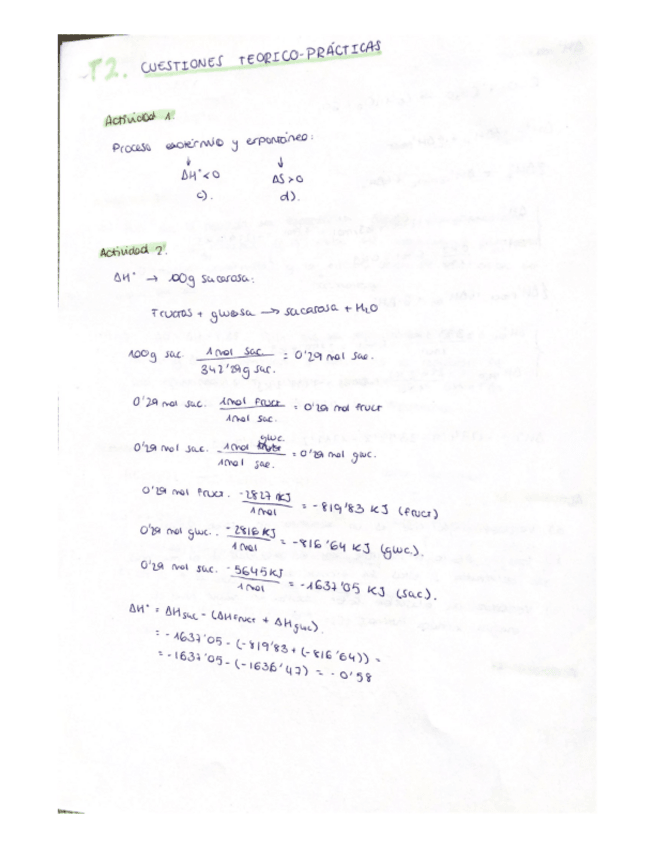 T2. CUESTIONES TEORICO-PRÁCTICAS
Actividad 1.
Proceso exotérmico y espontáneo:
↓ ↓
ΔH°<0 ΔS>0
c). d).
Actividad 2.
ΔH° → 100g sacarosa:
Fructos + glucosa → sacarosa + H2O
100g sac. 1 mol sac. / 342'29g sac. = 0'29 mol sac.
0'29 mol sac. 1 mol fruct / 1 mol sac. = 0'29 mol fruct
0'29 mol sac. 1 mol gluc. / 1 mol sac. = 0'29 mol gluc.
0'29 mol fruct. -2827 KJ / 1 mol = -819'83 KJ (fruct)
0'29 mol gluc. · -2816 KJ / 1 mol = -816'64 KJ (gluc).
0'29 mol sac. -5645 KJ / 1 mol = -1637'05 KJ (sac).
ΔH° = ΔHsac - (ΔHfruct + ΔHgluc).
= -1637'05 - (-819'83 + (-816'64)) =
= -1637'05 - (-1636'47) = -0'58